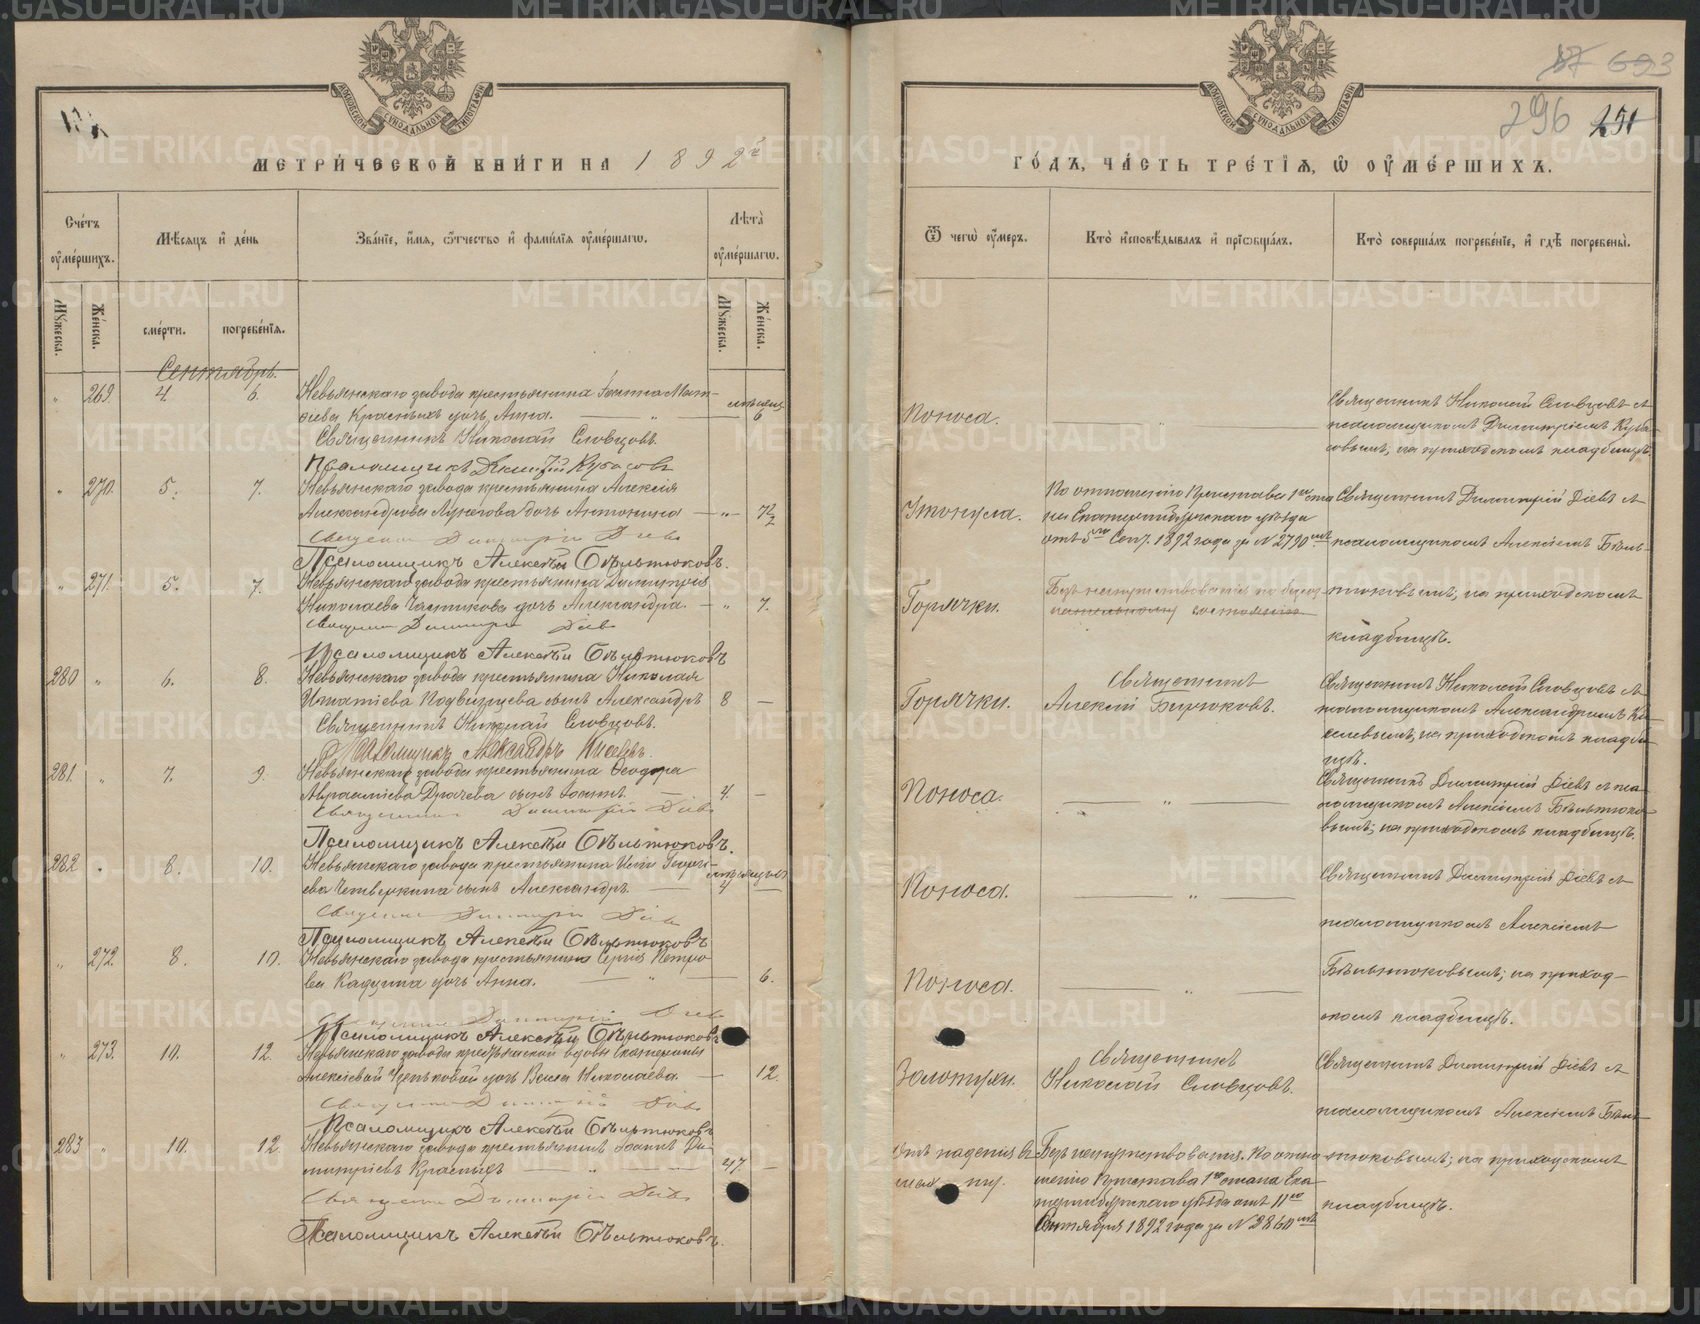 МЕТРИ́ЧЕСКОЙ КНИ́ГИ НА 1892й
ГО́ДЪ, ЧА́СТЬ ТРЕ́ТIѦ, Ѡ ОУМЕ́РШИХЪ.
693
296 251
Сче́тъ оумершихъ.
Мѣсяцъ и де́нь
Зва́нїе, и́мя, ѻтчество и фами́лїя оуме́ршагѡ.
Лѣта̀ оуме́ршагѡ.
Ѿ чегѡ̀ оу́меръ.
Кто̀ исповѣ́дывалъ и прїѡбща́лъ.
Кто̀ соверша́лъ погребе́нїе, и гдѣ̀ погребены̀.
Мꙋжеска.
Же́нска.
сме́рти.
погребе́нїя.
Мꙋжеска.
Же́нска.
Сентябрь.
" 269. 4. 6. Невьянскаго завода крестьянина Іоанна Мат-
фиева Красныхъ дочь Анна. — " — 6
Священникъ Николай Словцовъ.
Псаломщикъ Димитрій
Поноса.
Священникъ Николай Словцовъ съ
псаломщикомъ Димитріемъ
на приходскомъ кладбищѣ.
" 270. 5. 7. Невьянскаго завода крестьянина Алексія
Александрова дочь Антонина — " —
Священ Димитрій Діевъ
Псаломщикъ Алексѣй Бѣльтюковъ.
Утонула.
По отношенію Пристава 1го ста
на Екатеринбургскаго уѣзда
отъ 5го Сент. 1892 года за №2790
Священникъ Димитрій Діевъ съ
псаломщикомъ Алексіемъ Бѣль-
тюковымъ, на приходскомъ
кладбищѣ.
" 271. 5. 7. Невьянскаго завода крестьянина Димитрія
Николаева дочь Александра. — " 7.
Священ Димитрій Діевъ
Псаломщикъ Алексѣй Бѣльтюковъ
Горячки.
Безъ напутствованія по
280 " 6. 8. Невьянскаго завода крестьянина Николая
Игнатіева сынъ Александръ 8 —
Священникъ Николай Словцовъ.
Псаломщикъ Александръ Киселевъ
Горячки.
Священникъ
Алексій Бирюковъ.
Священникъ Николай Словцовъ съ
псаломщикомъ Александромъ Ки-
селевымъ, на приходскомъ кладби-
щѣ.
281. " 7. 9. Невьянскаго завода крестьянина Ѳеодора
Авраамiева сынъ Іоаннъ. — 4. —
Священник Димитрій Діевъ
Псаломщикъ Алексѣй Бѣльтюковъ.
Поноса.
Священникъ Димитрій Діевъ съ пса-
ломщикомъ Алексіемъ Бѣльтюко-
вымъ, на приходскомъ кладбищѣ.
282 " 8. 10. Невьянскаго завода крестьянина Иліи Георгі-
ева Четверкина сынъ Александръ. — 4 —
Священ Димитрій Діевъ
Псаломщикъ Алексѣй Бѣльтюковъ
Поноса.
Священникъ Димитрій Діевъ съ
псаломщикомъ Алексіемъ
Бѣльтюковымъ; на приход-
скомъ кладбищѣ.
" 272. 8. 10. Невьянскаго завода крестьянина Сергія Петро-
ва дочь Анна. — " — 6.
Священник Димитрій Діевъ
Псаломщикъ Алексѣй Бѣльтюковъ
Поноса.
" 273. 10. 12. Невьянскаго завода крестьянской вдовы Екатерины
Алексіевой дочь Николаева. — 12.
Священник Димитрій Діевъ
Псаломщикъ Алексѣй Бѣльтюковъ
Золотухи.
Священникъ
Николай Словцовъ.
Священникъ Димитрій Діевъ съ
псаломщикомъ Алексіемъ Бѣль-
тюковымъ; на приходскомъ
кладбищѣ.
283 " 10. 12. Невьянскаго завода крестьянинъ Іоаннъ Ди-
митріевъ Красныхъ — " — 47. —
Священ Димитрій Діевъ
Псаломщикъ Алексѣй Бѣльтюковъ.
Отъ паденія въ
шахту.
Безъ напутствованія. По отно-
шенію Пристава 1го стана Ека-
теринбургскаго уѣзда отъ 11го
Сентября 1892 года за №2860
METRIKI.GASO-URAL.RU